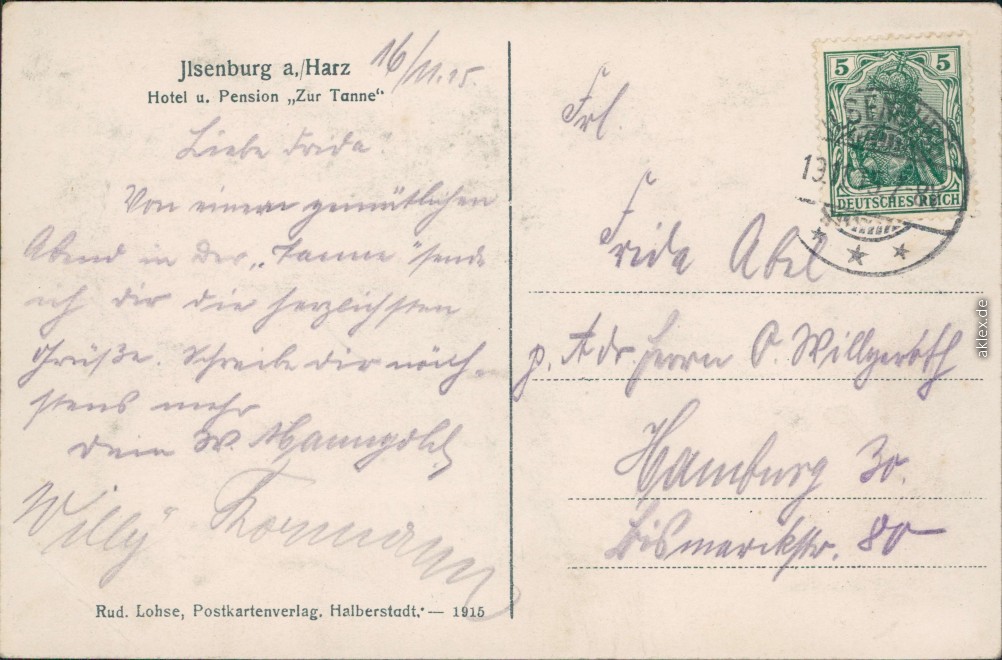 Jlsenburg a./Harz
Hotel u. Pension „Zur Tanne“
16/11.15.
Liebe Frida
Von einem gemütlichen
Abend in der „Tanne“ sende
ich dir die herzlichsten
Grüße. Schreibe dir näch-
stens mehr
Dein W.
Willy
Rud. Lohse, Postkartenverlag, Halberstadt. — 1915
5 5
DEUTSCHES REICH
Frl.
Frida Abel
p. Adr. Herrn O. Willgeroth
Hamburg 30.
Bismarckstr. 80
aklex.de